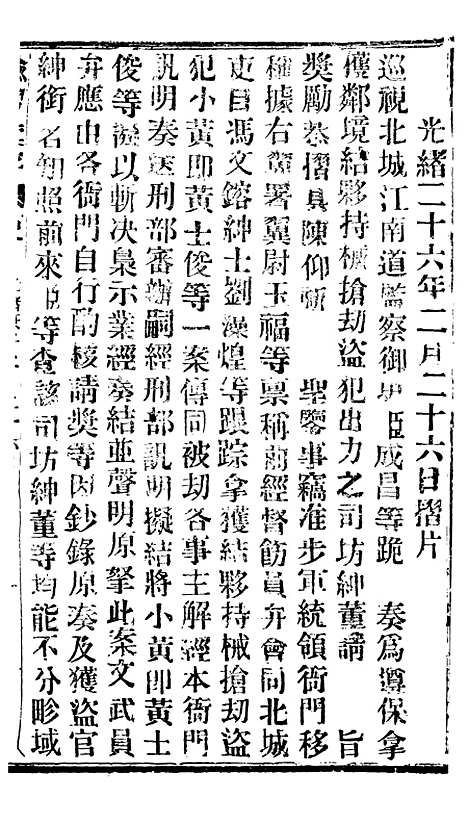 光緒二十六年二月二十六日摺片
巡視北城江南道監察御史臣咸昌等跪　奏爲遵保拿
獲鄰境結夥持械搶劫盜犯出力之司坊紳董請　旨
獎勵恭摺具陳仰祈　聖鑒事竊准步軍統領衙門移
稱據右翼署翼尉玉福等禀稱前經督飭員弁會同北城
吏目馮文鎔紳士劉藻煌等跟踪拿獲結夥持械搶劫盜
犯小黃卽黃士俊等一案傳同被劫各事主解經本衙門
訊明奏送刑部審辦嗣經刑部訊明擬結將小黃卽黃士
俊等議以斬決梟示業經奏結並聲明原拏此案文武員
弁應由各衙門自行酌核請獎等因鈔錄原奏及獲盜官
紳銜名知照前來臣等查該司坊紳董等均能不分畛域